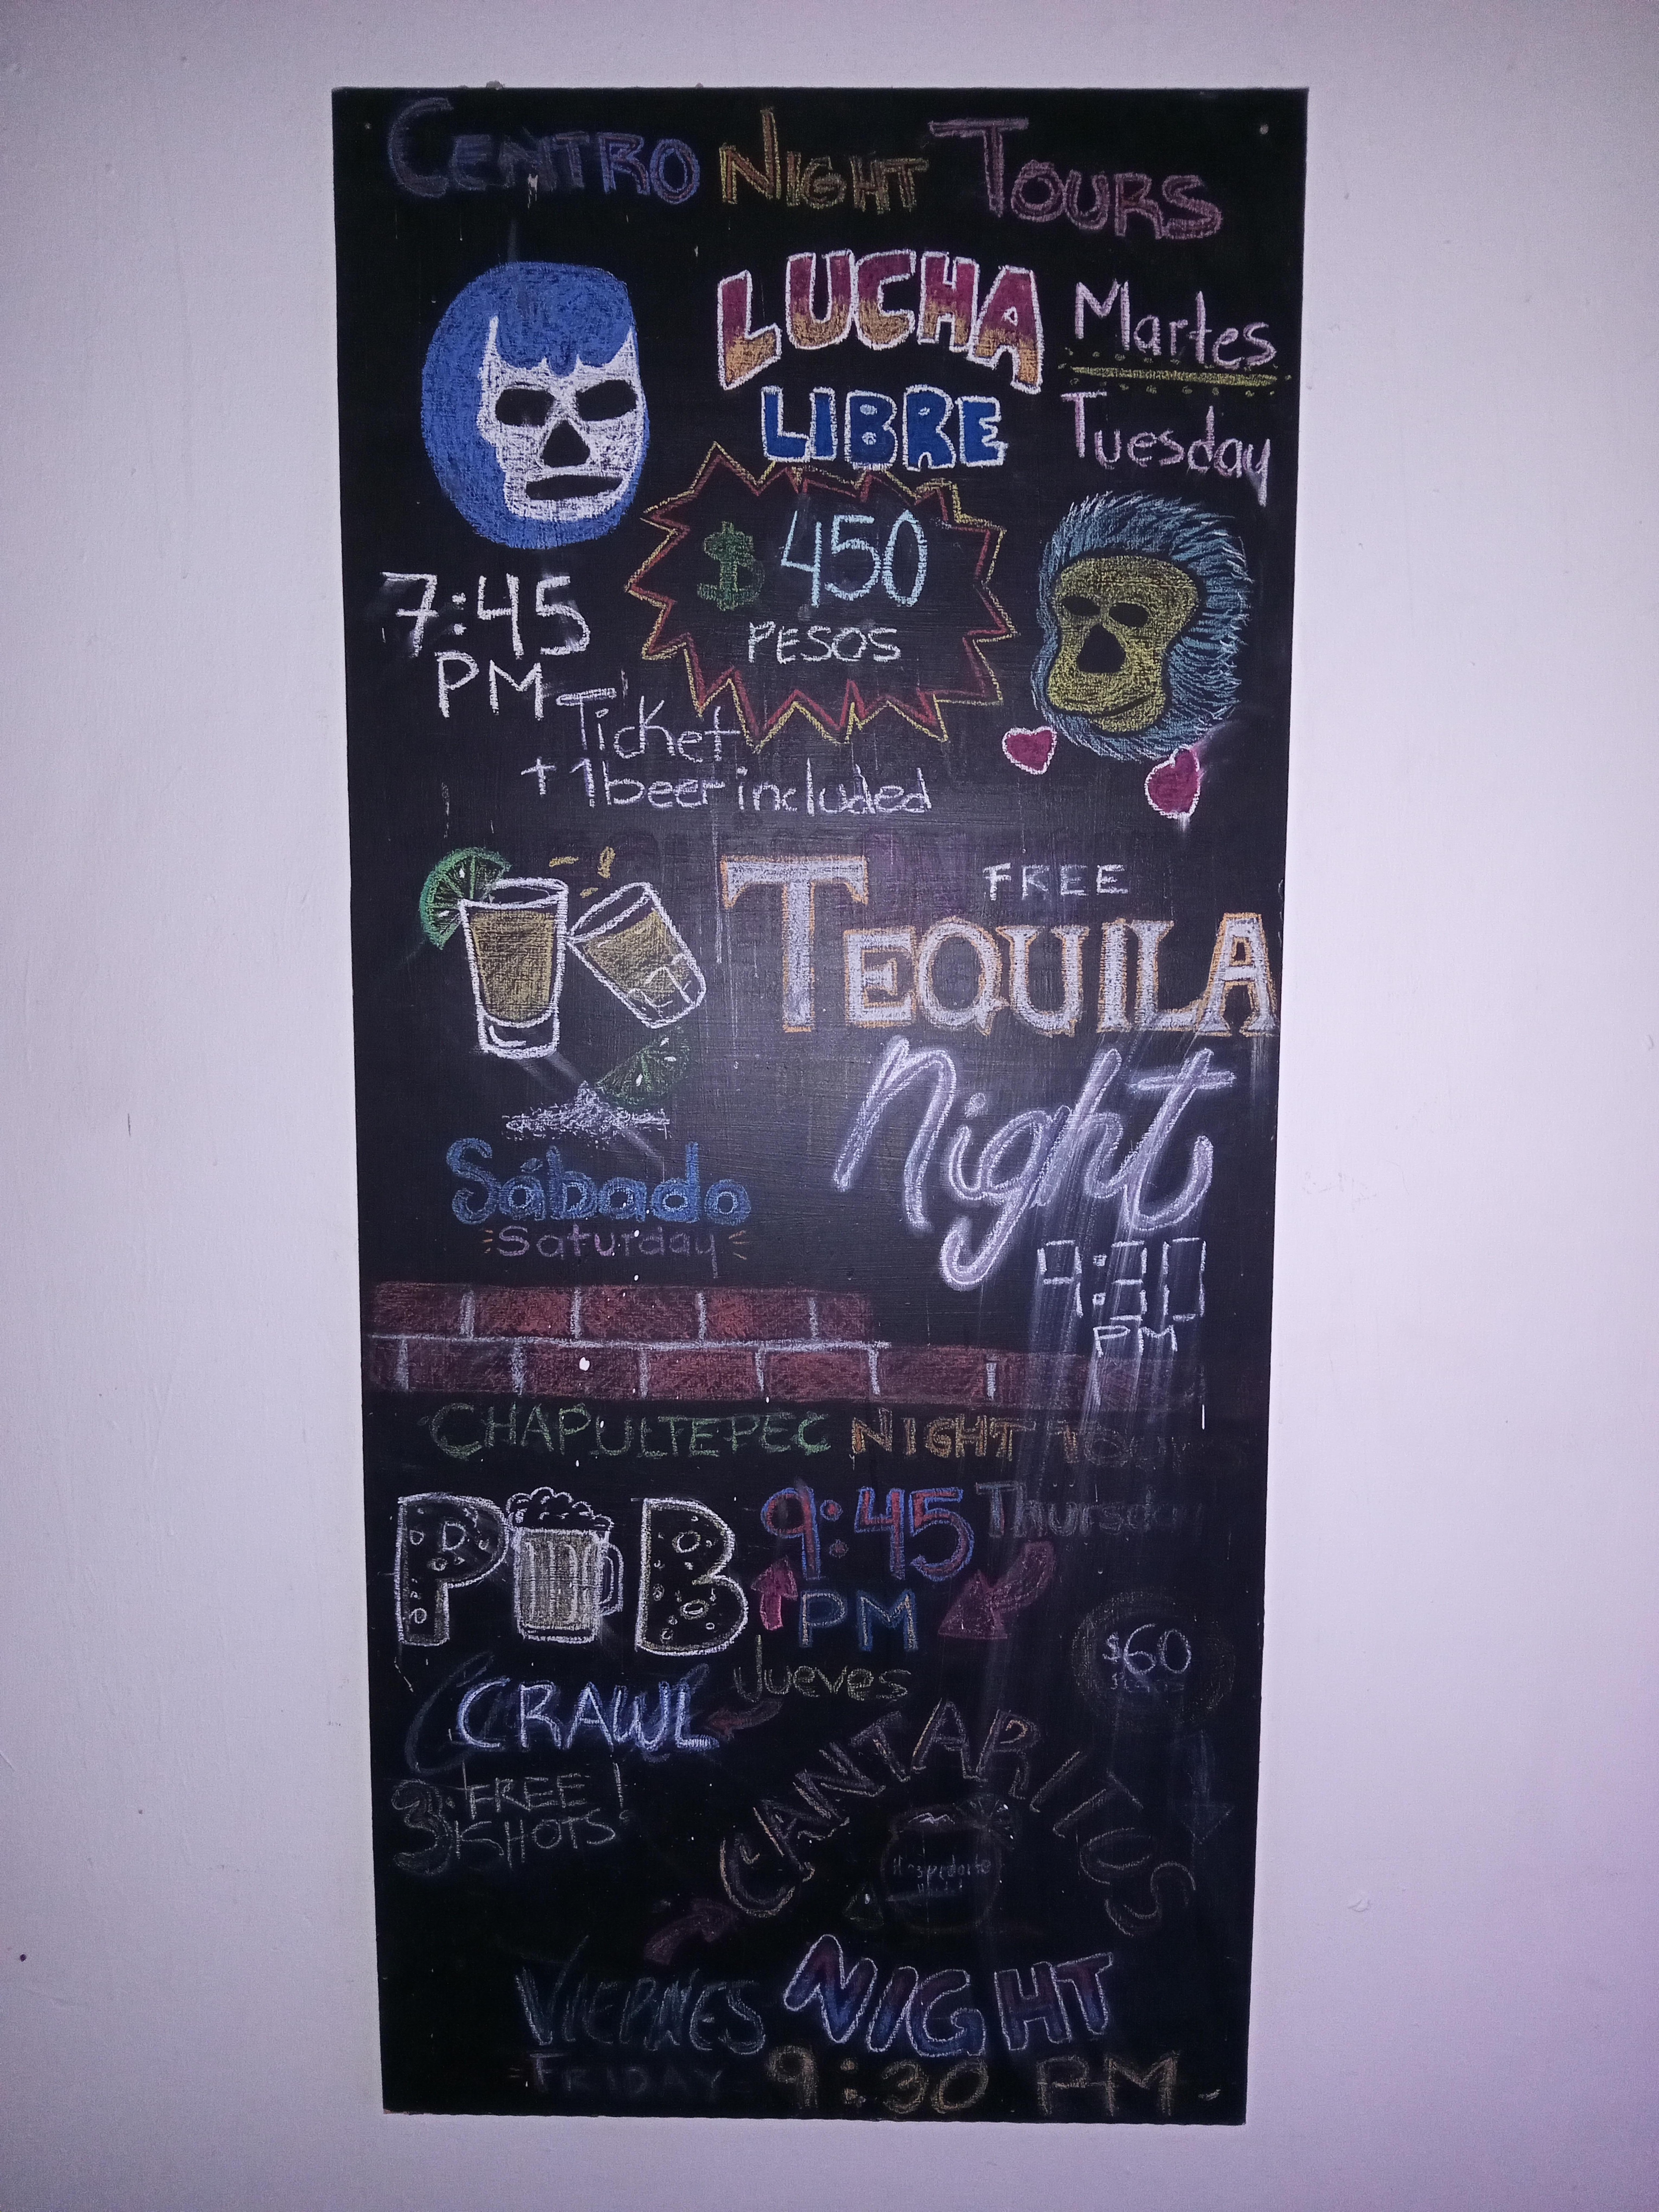 CENTRO NIGHT TOURS
LUCHA
LIBRE
Martes
Tuesday
$450
PESOS
7:45
PM
Ticket
+ 1 beer included
FREE
TEQUILA
Night
Sábado
Saturday
9:30
PM
CHAPULTEPEC NIGHT
PUB
9:45
PM
Thursday
Jueves
CRAWL
3 FREE!
SHOTS
$60
CANTARITOS
VIERNES NIGHT
FRIDAY 9:30 PM